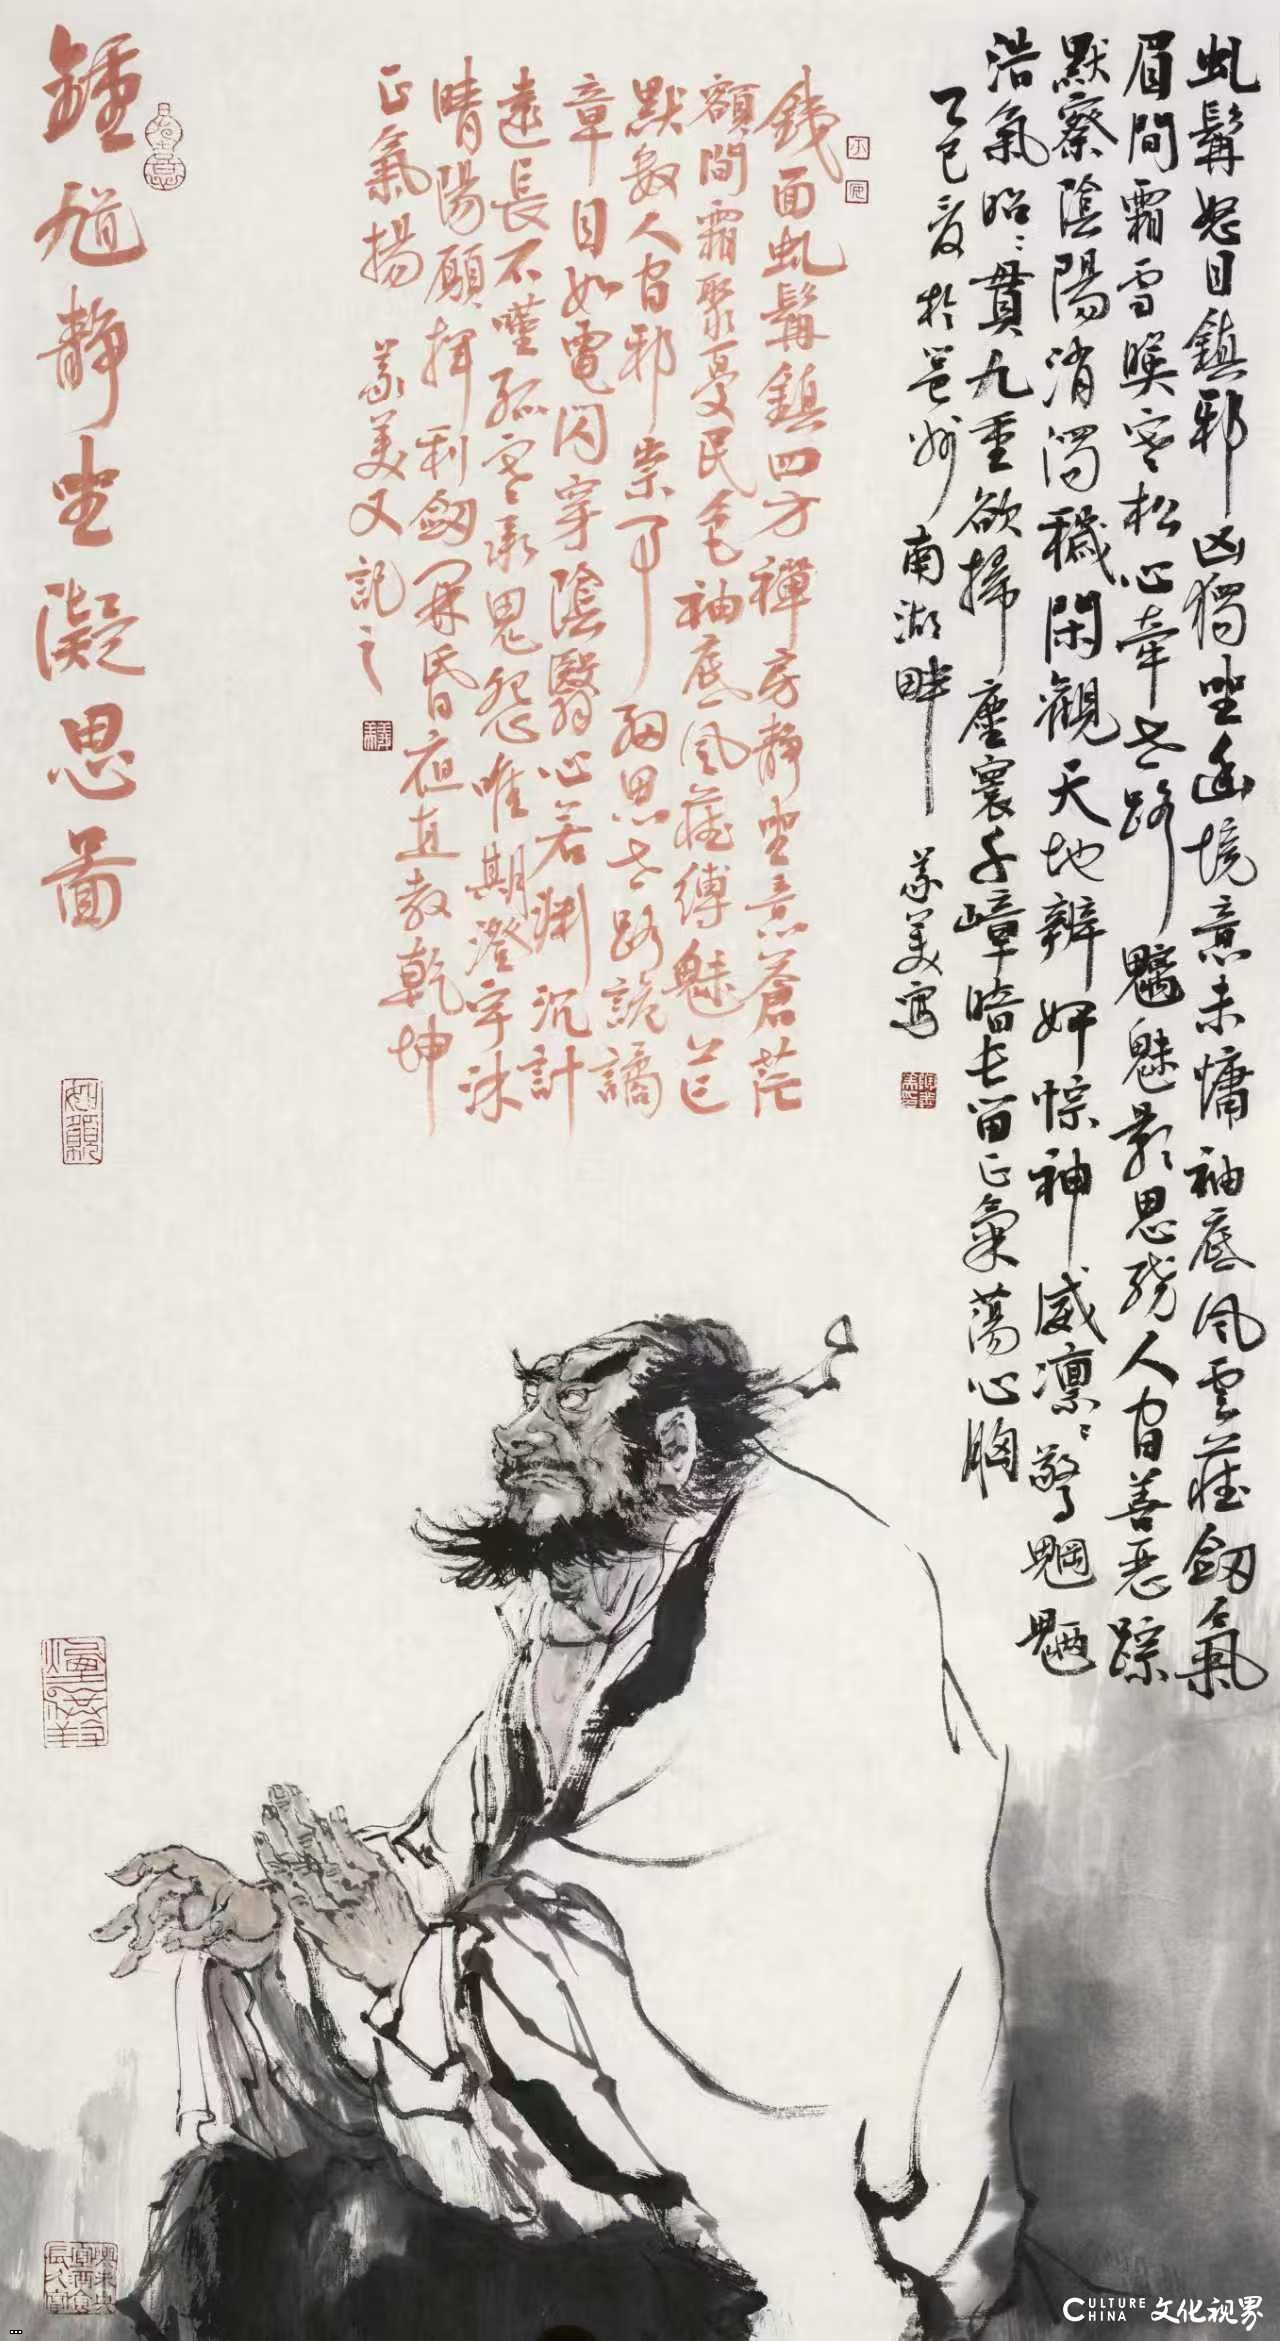 虬髯怒目鎮邪凶獨坐幽境意未慵袖底風雲藏劍氣
眉間霜雪映寒松心牽世路魑魅影思繞人間善惡踪
默察陰陽消濁穢閑觀天地辨奸悰神威凛凛驚魍魎
浩氣昭昭貫九重欲掃塵寰千嶂暗長留正氣蕩心胸
乙巳夏於邕州南湖畔 義美寫
銕面虬髯鎮四方禪房靜坐意蒼茫
額間霜聚憂民色袖底風藏縛魅芒
默數人間邪祟事 細思世路詭譎
章目如電閃穿陰翳心若淵沉計
遠長不孤寒承鬼怨唯期澄宇沐
晴陽願揮利劍開昏夜直教乾坤
正氣揚 義美又記之
鍾馗靜坐凝思圖
CULTURE CHINA 文化视界